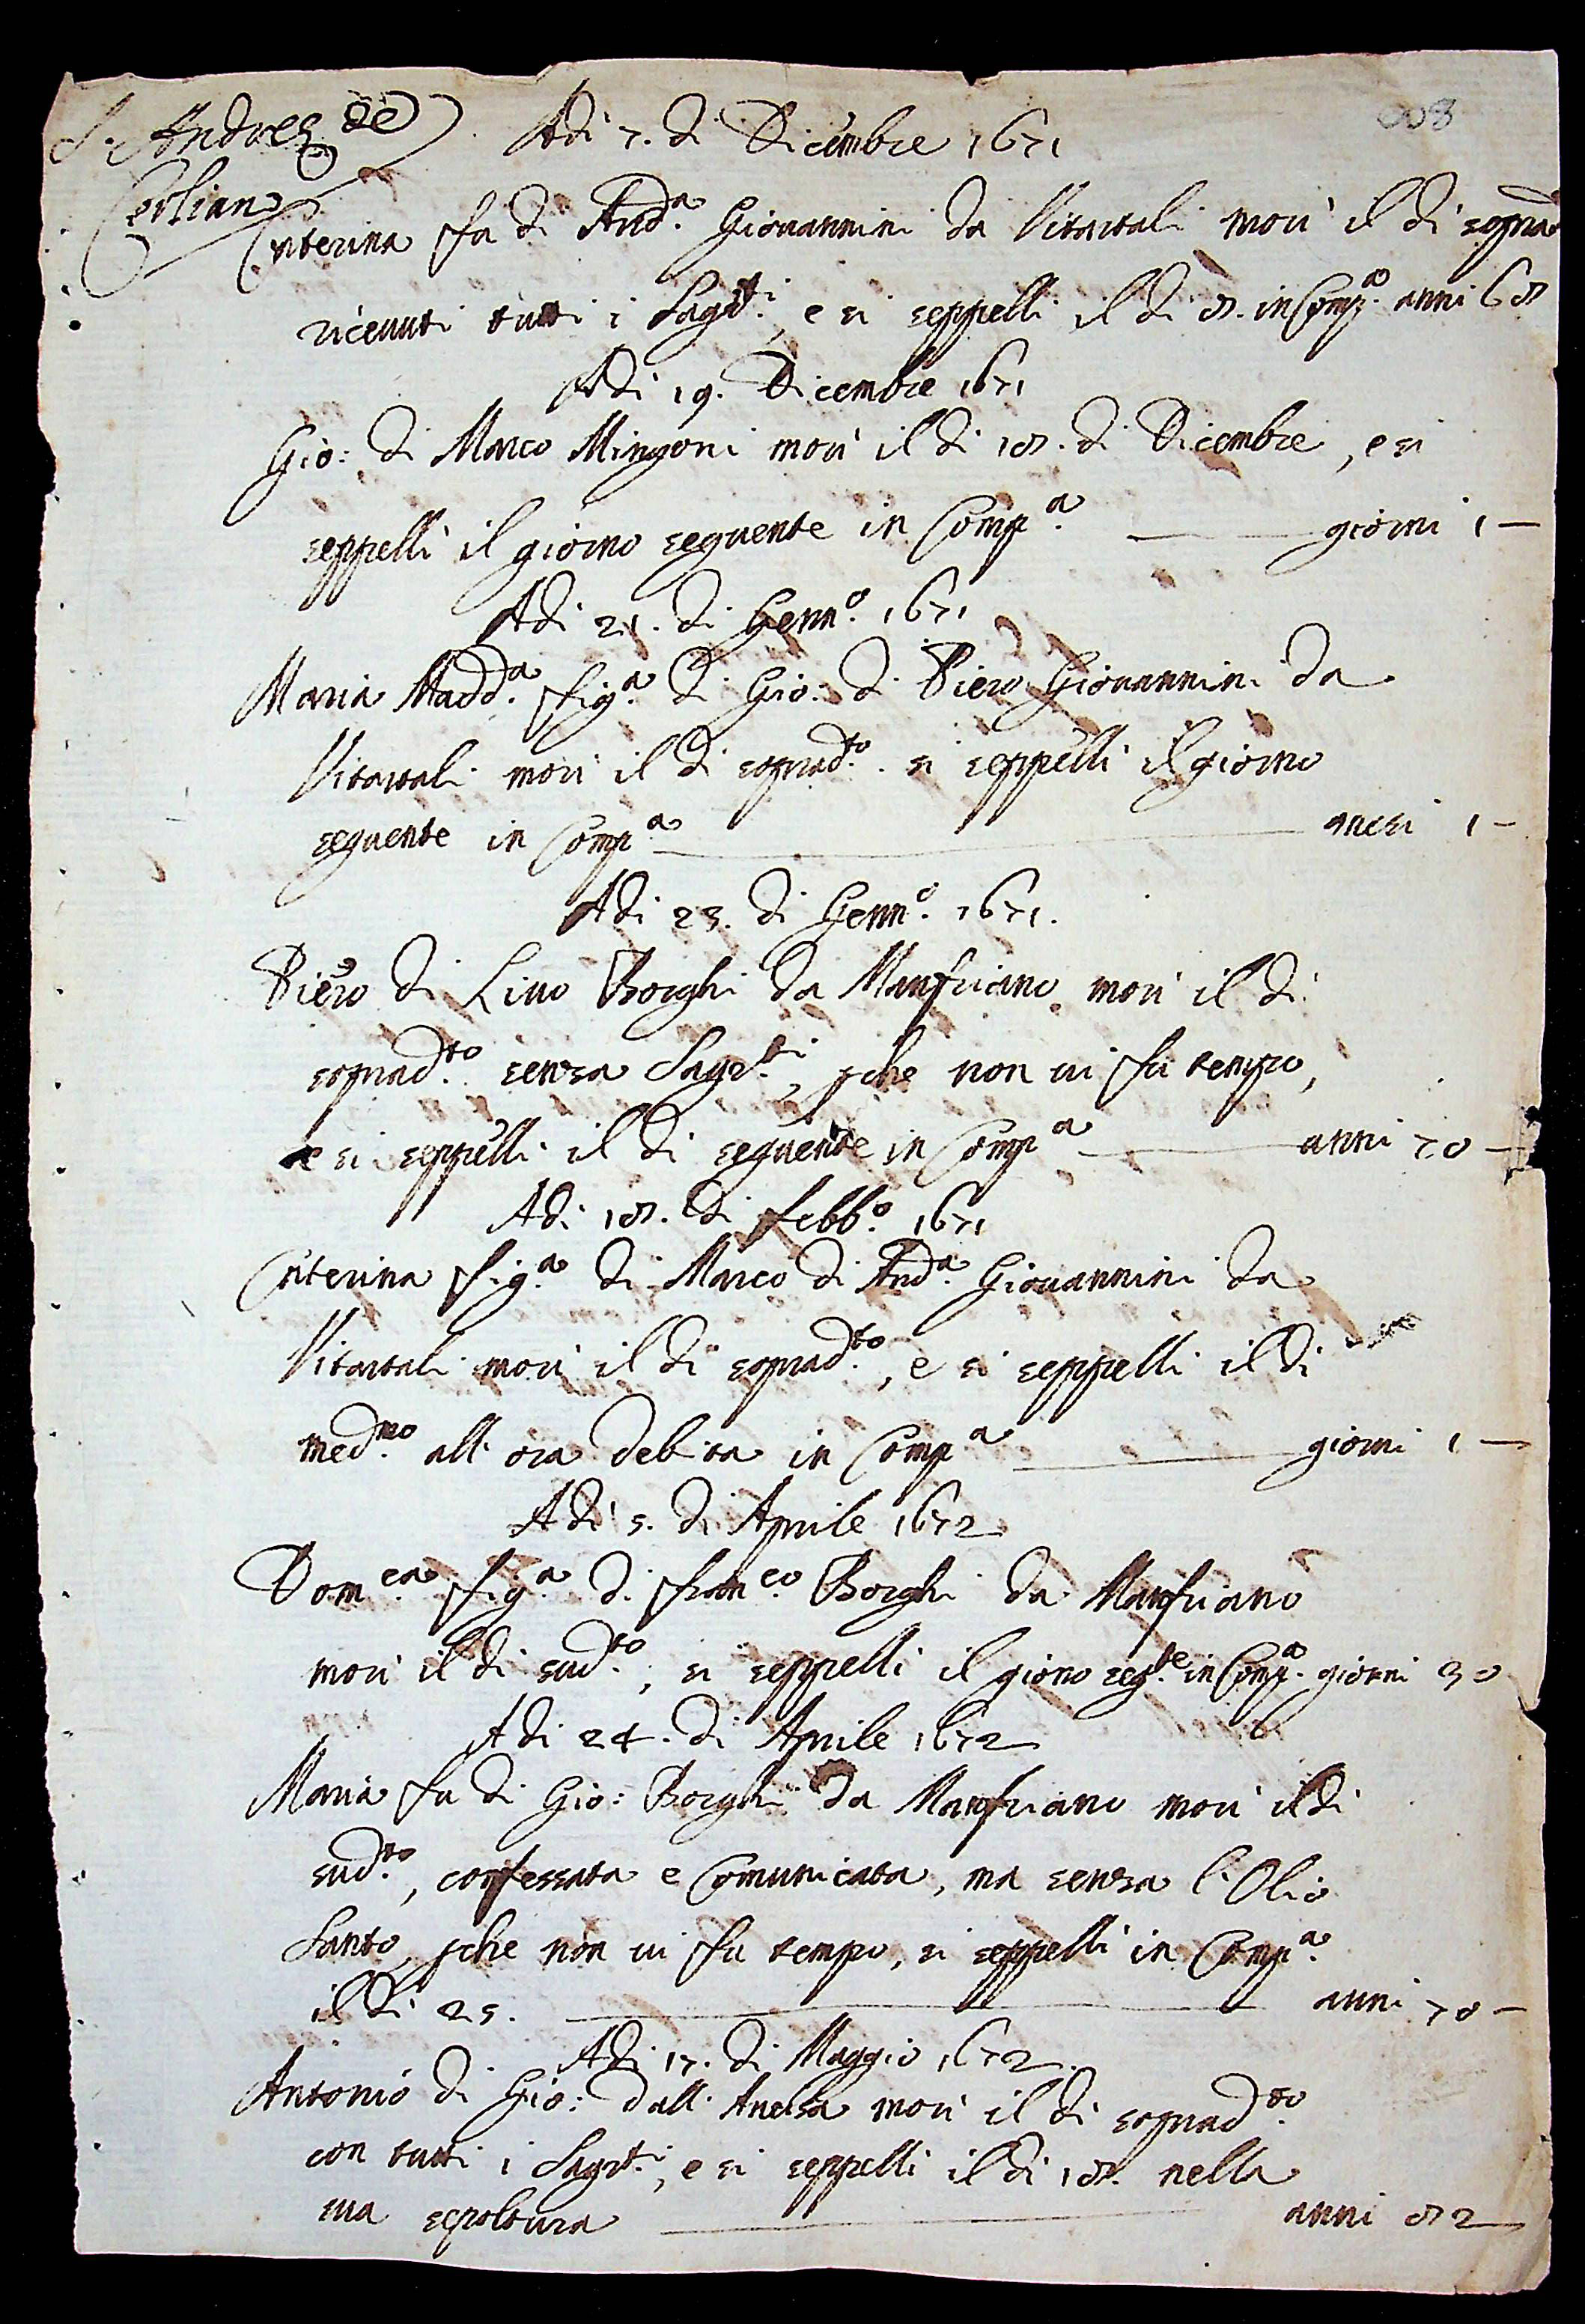 S. Andrea de
Corliano
008
Adi 7. di Dicembre 1671
Caterina fu di And.a Giouannini da Vitartali morì il di soprad
riceuuti tutti i Sagr.ti, e si seppellì il di 8. in Comp.a anni 68
Adi 19. Dicembre 1671
Gio: di Marco Mingoni morì il di 18. di Dicembre, e si
seppellì il giorno seguente in Comp.a giorni 1 —
Adi 21. di Genn.o 1671
Maria Madd.a fig.a di Gio: di Piero Giouannini da
Vitartali morì il di soprad.to si seppellì il giorno
seguente in Comp.a mesi 1 —
Adi 23. di Genn.o 1671.
Piero di Lino Borghi da Manfriano morì il di
soprad.to senza Sagr.ti, pche non ui fu tempo,
e si seppellì il di seguente in Comp.a anni 70 —
Adi 18. di febb.o 1671
Caterina fig.a di Marco di And.a Giouannini da
Vitartali morì il di soprad.to, e si seppellì il di
med.mo all'ora debita in Comp.a giorni 1 —
Adi 5. di Aprile 1672
Dom.ca fig.a di fran.co Borghi da Manfriano
morì il di sud.to, si seppellì il giorno seg.te in Comp.a giorni 30
Adi 24. di Aprile 1672
Maria fu di Gio: Borghi da Manfriano morì il di
sud.to, confessata e Comunicata, ma senza l'Olio
Santo, pche non ui fu tempo, si seppellì in Comp.a
il di 25. anni 70 —
Adi 17. di Maggio 1672.
Antonio di Gio: dall' morì il di soprad.to
con tutti i Sagr.ti, e si seppellì il di 18. nella
sua sepoltura anni 82